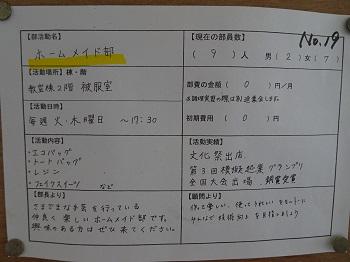 No.19
【部活動名】
ホームメイド部
【現在の部員数】
( 9 ) 人 男 ( 2 ) 女 ( 7 )
【活動場所】棟・階
教室棟2階 被服室
部費の金額 ( 0 ) 円/月
※調理実習の際は別途集金します。
【活動日時】
毎週 火・木曜日 〜17:30
初期費用 ( 0 ) 円
【活動内容】
・エコバッグ
・トートバッグ
・レジン
・フェイクスイーツ など
【活動実績】
文化祭出店
第3回模擬起業グランプリ
全国大会出場 銅賞受賞
【部長より】
さまざまな手芸を行っている
仲良く楽しいホームメイド部です。
興味のある方はぜひ来てください。
【顧問より】
作って楽しい、使ってうれしいをモットーに
みんなで技術向上を目指しましょう